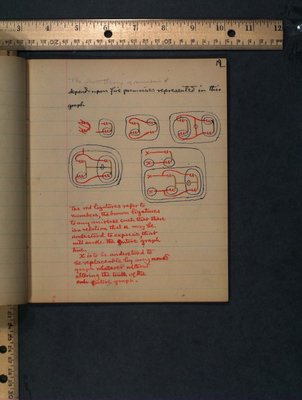 3 4 5 6 7 8 9 10 11 12
The
depend upon five premisses represented in this
graph
The red ligatures refer to
numbers, the brown ligatures
to any universe such that there
is a relation that x may be
understood to express that
will make the entire graph
true.
X is to be understood to
be replaceable by any
graph whatever without
altering the truth of the
entire graph.